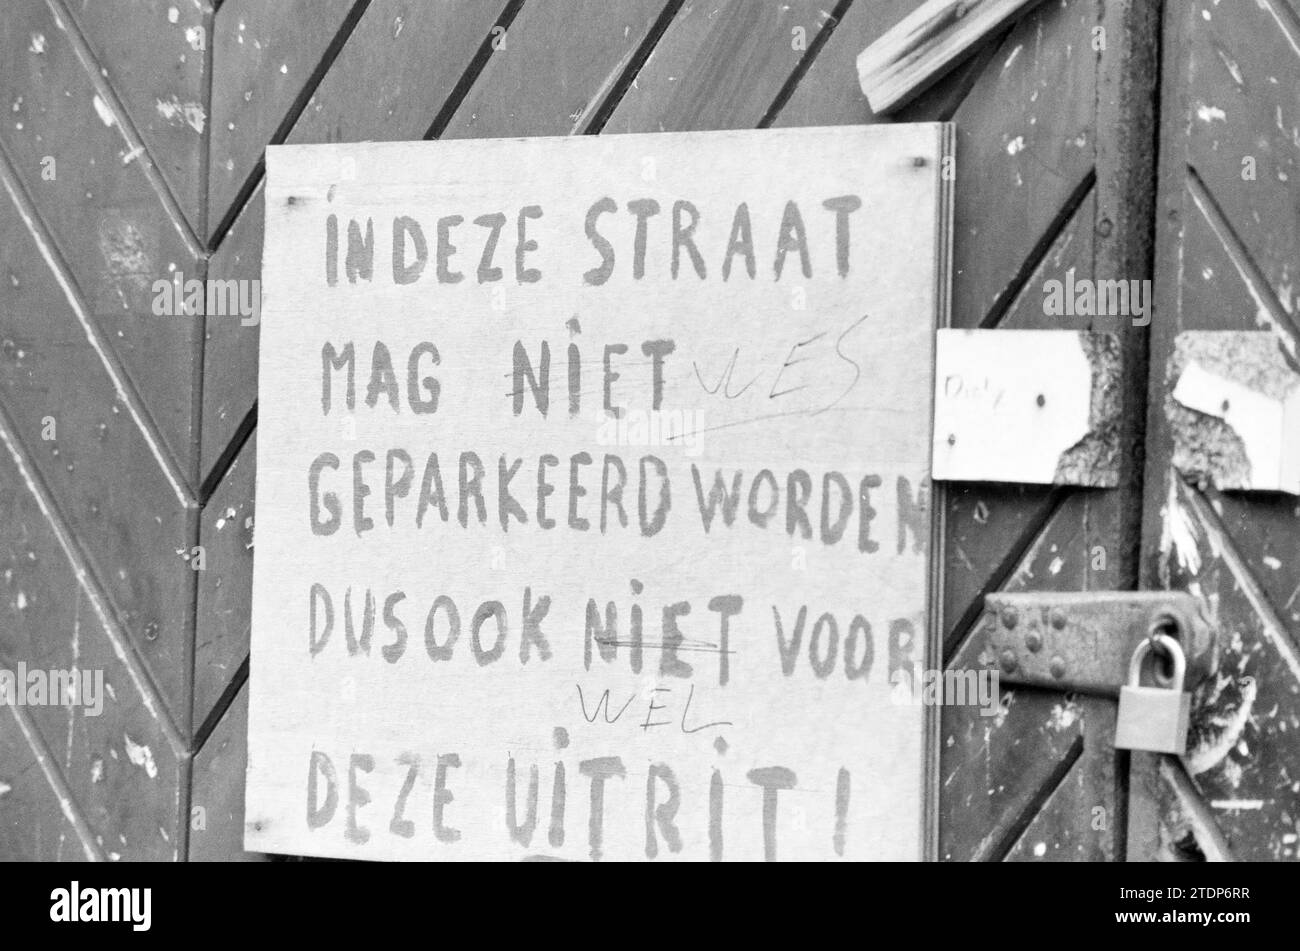 iN DEZE STRAAT
MAG NiET
GEPARKEERD WORDEN
DUS OOK NiET VOOR
WEL
DEZE UiTRiT!
alamy
Image ID: 2TDP6RR
www.alamy.com